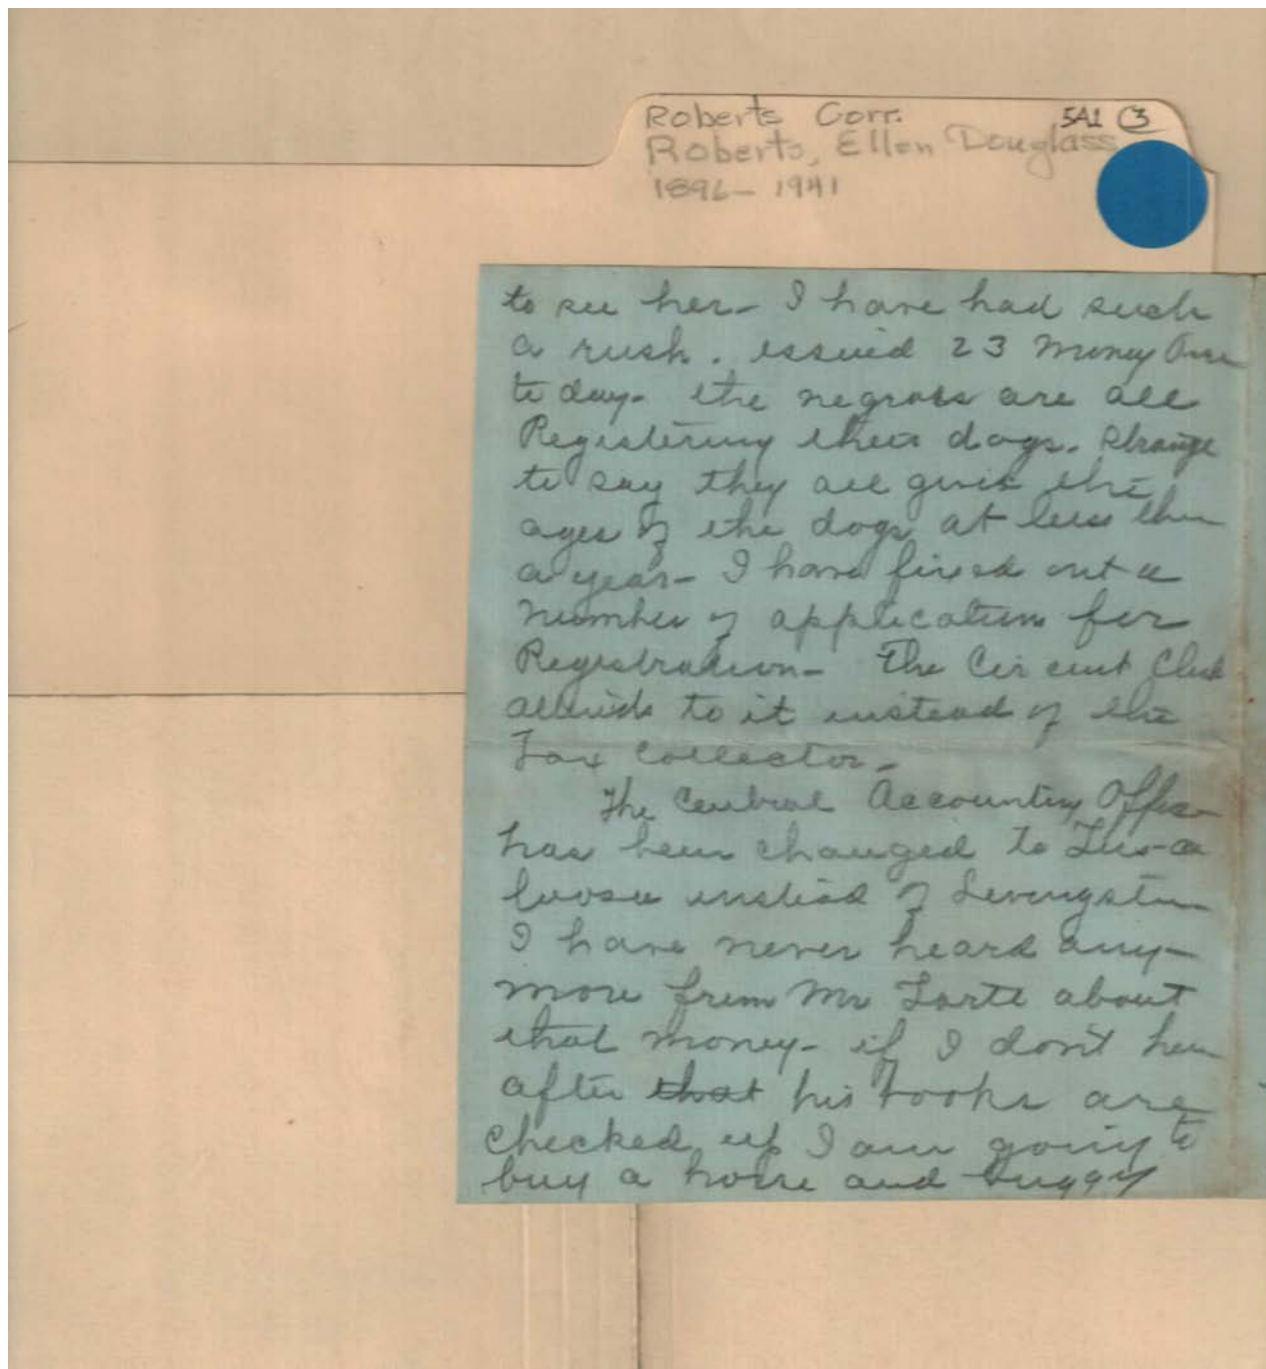 Roberts Corr. 5A1 3
Roberts, Ellen Douglass
1896 – 1941
to see her – I have had such
a rush. issued 23 money
to day – the negroes are all
Registering their dogs. Strange
to say they all give the
ages of the dogs at less than
a year – I have fixed out a
number of application for
Registration – The Circuit Clerk
attends to it instead of the
Tax Collector –
The Central Accounting Office
has been changed to Tus-ca
loosa instead of Livingston
I have never heard any-
more from Mr about
that money – if I don't hear
after that his books are
checked up I am going to
buy a horse and buggy